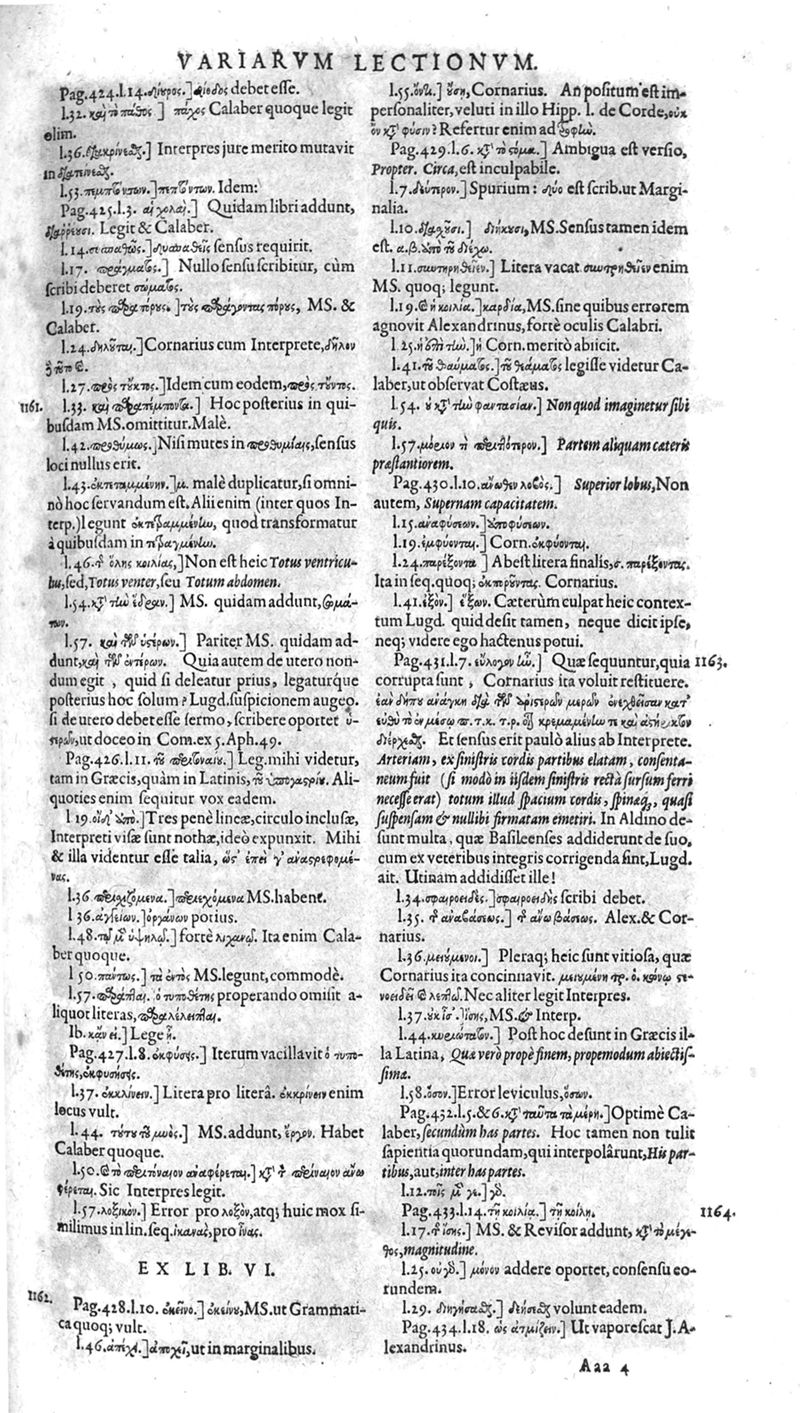 VARIARVM LECTIONVM.
Pag. 424. l. 14. debet esse.
l. 32. καὶ τὸ πάθος ] πάχος Calaber quoque legit
olim.
l. 36. Interpres jure merito mutavit
in
l. 53. Idem:
Pag. 425. l. 3. Quidam libri addunt,
Legit & Calaber.
l. 14. sensus requirit.
l. 17. πράγματος.] Nullo sensu scribitur, cùm
scribi deberet σώματος.
l. 19. MS. &
Calaber.
l. 24. δηλοῦται.] Cornarium cum Interprete, δῆλον
l. 27. Idem cum eodem,
1161.
l. 33. Hoc posterius in qui-
busdam MS. omittitur. Malè.
l. 42. προθύμως.] Nisi mutes in προθυμίαις, sensus
loci nullus erit.
l. 43. ἐκτεταμμένην.] μ. malè duplicatur, si omni-
nò hoc servandum est. Alii enim (inter quos In-
terp.) legunt quod transformatur
à quibusdam in
l. 46. τῆς ὅλης κοιλίας,] Non est heic Totus ventricu-
lus, sed, Totus venter, seu Totum abdomen.
l. 54. κατὰ τὴν ἕδραν.] MS. quidam addunt,
l. 57. καὶ τῶν ὑστέρων.] Pariter MS. quidam ad-
dunt, καὶ τῶν ἐντέρων. Quia autem de utero non-
dum egit, quid si deleatur prius, legaturque
posterius hoc solum? Lugd. suspicionem augeo.
si de utero debet esse sermo, scribere oportet ὑ-
στερῶν, ut doceo in Com. ex 5. Aph. 49.
Pag. 426. l. 11. Leg. mihi videtur,
tam in Græcis, quàm in Latinis, Ali-
quoties enim sequitur vox eadem.
l 19. Tres penè lineæ, circulo inclusæ,
Interpreti visæ sunt nothæ, ideò expunxit. Mihi
& illa videntur esse talia,
l. 36. MS. habent.
l 36. ἀγγείων.] ὀργάνων potius.
l. 48. fortè Ita enim Cala-
ber quoque.
l 50. πάντως.] τὰ ἐντὸς MS. legunt, commodè.
l. 57. ὁ τυποθέτης properando omisit a-
liquot literas,
Ib. κἂν εἰ.] Lege ἢ.
Pag. 427. l. 8. ἐκφύσης.] Iterum vacillavit ὁ τυπο-
θέτης, ἐκφυσήσης.
l. 37. ἐκκλίνειν.] Litera pro literâ. ἐκκρίνειν enim
locus vult.
l. 44. MS. addunt, ἔργον. Habet
Calaber quoque.
l. 50.
Sic Interpres legit.
l. 57. λοξικὸν.] Error pro λοξὸν, atq; huic mox si-
milimus in lin. seq. ἱκανὰς, pro ἶνας.
EX LIB. VI.
1162.
Pag. 428. l. 10. ἐκεῖνο.] ἐκείνου, MS. ut Grammati-
ca quoq; vult.
l. 46. ἀπέχῃ.] ut in marginalibus.
l. 55. Cornarius. An positum est im-
personaliter, veluti in illo Hipp. l. de Corde, οὐκ
ὂν κατὰ φύσιν? Refertur enim ad
Pag. 429. l. 6. κατὰ τὸ σῶμα.] Ambigua est versio,
Propter. Circa, est inculpabile.
l. 7. δεύτερον.] Spurium: δύο est scrib. ut Margi-
nalia.
l. 10. MS. Sensus tamen idem
est.
l. 11. Litera vacat. enim
MS. quoq; legunt.
l. 19. καὶ ἡ κοιλία.] καρδία, MS. sine quibus errorem
agnovit Alexandrinus, fortè oculis Calabri.
l 25. Corn. meritò abiicit.
l. 41. τοῦ θαύματος.] τοῦ θεάματος legisse videtur Ca-
laber, ut observat Costæus.
l. 54. οὐ κατὰ τὴν φαντασίαν.] Non quod imaginetur sibi
quis.
l. 57. Partem aliquam cæteris
præstantiorem.
Pag. 430. l. 10. ἄνωθεν λοβὸς.] Superior lobus, Non
autem, Supernam capacitatem.
l. 15. ἀναφύσεων.] ὑποφύσεων.
l. 19. ἐμφύονται.] Corn. ἐκφύονται.
l. 24. παρέξοντα ] Abest litera finalis, ς. παρέξοντας.
Ita in seq. quoq; Cornarius.
l. 41. ἐξὸν.] ἔξων. Cæterùm culpat heic contex-
tum Lugd. quid desit tamen, neque dicit ipse,
neq; videre ego hactenus potui.
Pag. 431. l. 7. εὔλογον ἦν.] Quæ sequuntur, quia
1163.
corrupta sunt, Cornarius ita voluit restituere.
Et sensus erit paulò alius ab Interprete.
Arteriam, ex sinistris cordis partibus elatam, consenta-
neum fuit (si modò in iisdem sinistris rectà sursum ferri
necesse erat) totum illud spacium cordis, spinæq;, quasi
suspensam & nullibi firmatam emetiri. In Aldino de-
sunt multa, quæ Basileenses addiderunt de suo,
cum ex veteribus integris corrigenda sint, Lugd.
ait. Utinam addidisset ille!
l. 34. σφαιροειδὲς.] σφαιροειδὴς scribi debet.
l. 35. τῆς ἀναβάσεως.] τῆς ἄνω βάσεως. Alex. & Cor-
narius.
l. 36. μειούμενοι.] Pleraq; heic sunt vitiosa, quæ
Cornarius ita concinnavit.
Nec aliter legit Interpres.
l. 37. MS. & Interp.
l. 44. κυριώτατον.] Post hoc desunt in Græcis il-
la Latina, Quæ verò propè finem, propemodum abiectis-
sima.
l. 58. ὅσον.] Error leviculus, ὅσων.
Pag. 432. l. 5. & 6. κατὰ ταῦτα τὰ μέρη.] Optimè Ca-
laber, secundùm has partes. Hoc tamen non tulit
sapientia quorundam, qui interpolârunt, His par-
tibus, aut, inter has partes.
l. 12.
Pag. 433. l. 14. τῇ κοιλίᾳ.] τῇ κοίλῃ.
1164.
l. 17. τῆς ἴσης.] MS. & Revisor addunt, κατὰ τὸ μέγε-
θος, magnitudine.
l. 25. μόνον addere oportet, consensu eo-
rundem.
l. 29. volunt eadem.
Pag. 434. l. 18. ὡς ἀτμίζειν.] Ut vaporescat J. A-
lexandrinus.
Aaa 4